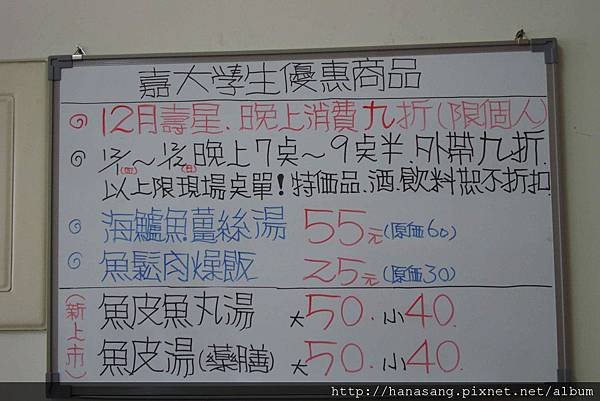 嘉大學生優惠商品
12月壽星.晚上消費九折(限個人)
12/1(四)~12/2晚上7点~9点半.外帶九折.
以上限現場点單!特価品.酒.飲料恕不折扣.
海鱸魚薑絲湯 55元(原価60)
魚鬆肉燥飯 25元(原価30)
(新上市)
魚皮魚丸湯 大50.小40.
魚皮湯(藥膳) 大50.小40.
http://hanasang.pixnet.net/album